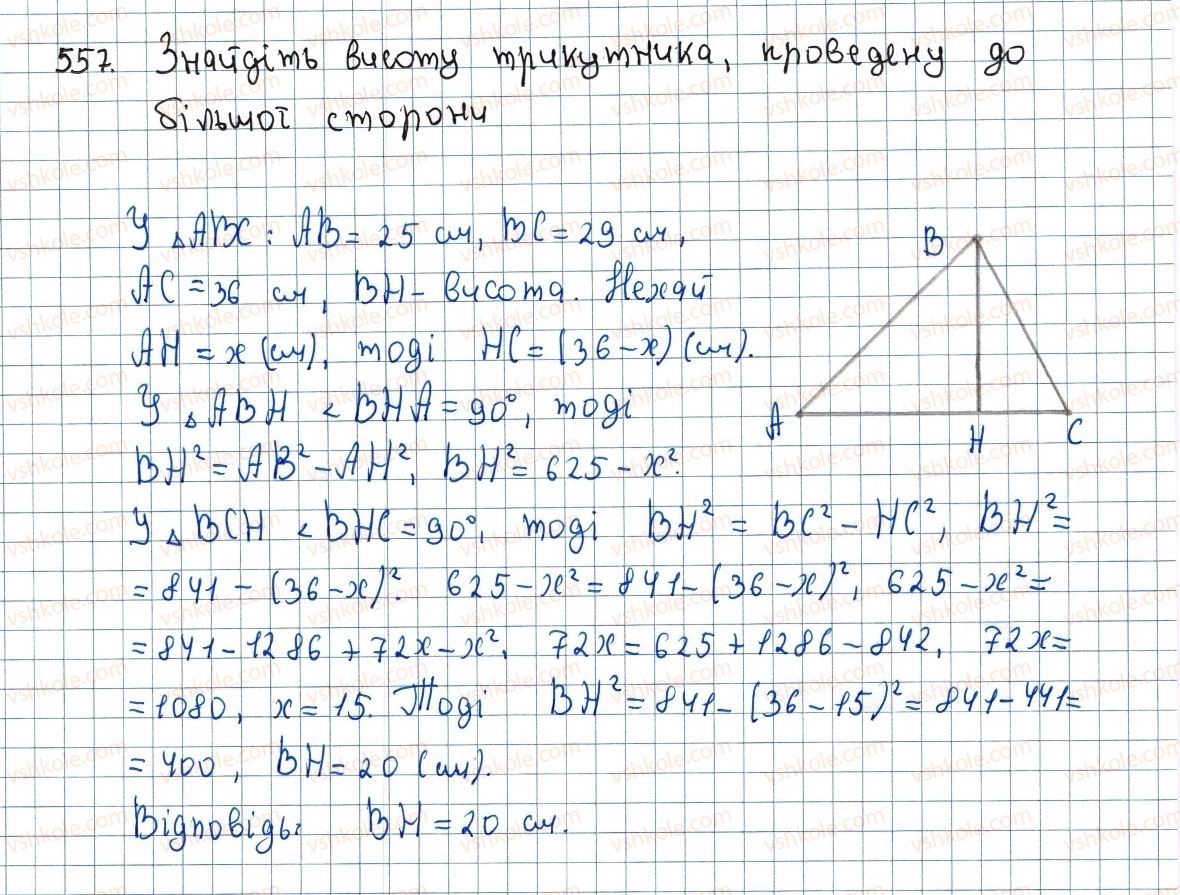 557. Знайдіть висоту трикутника, проведену до
більшої сторони
У △ABC: AB = 25 см, BC = 29 см,
AC = 36 см, BH - висота. Нехай
AH = x (см), тоді HC = (36 - x) (см).
У △ABH < BHA = 90°, тоді
BH² = AB² - AH², BH² = 625 - x².
У △BCH < BHC = 90°, тоді BH² = BC² - HC², BH² =
= 841 - (36 - x)². 625 - x² = 841 - (36 - x)², 625 - x² =
= 841 - 1286 + 72x - x², 72x = 625 + 1286 - 842, 72x =
= 1080, x = 15. Тоді BH² = 841 - (36 - 15)² = 841 - 441 =
= 400, BH = 20 (см).
Відповідь: BH = 20 см.
B
A
H
C